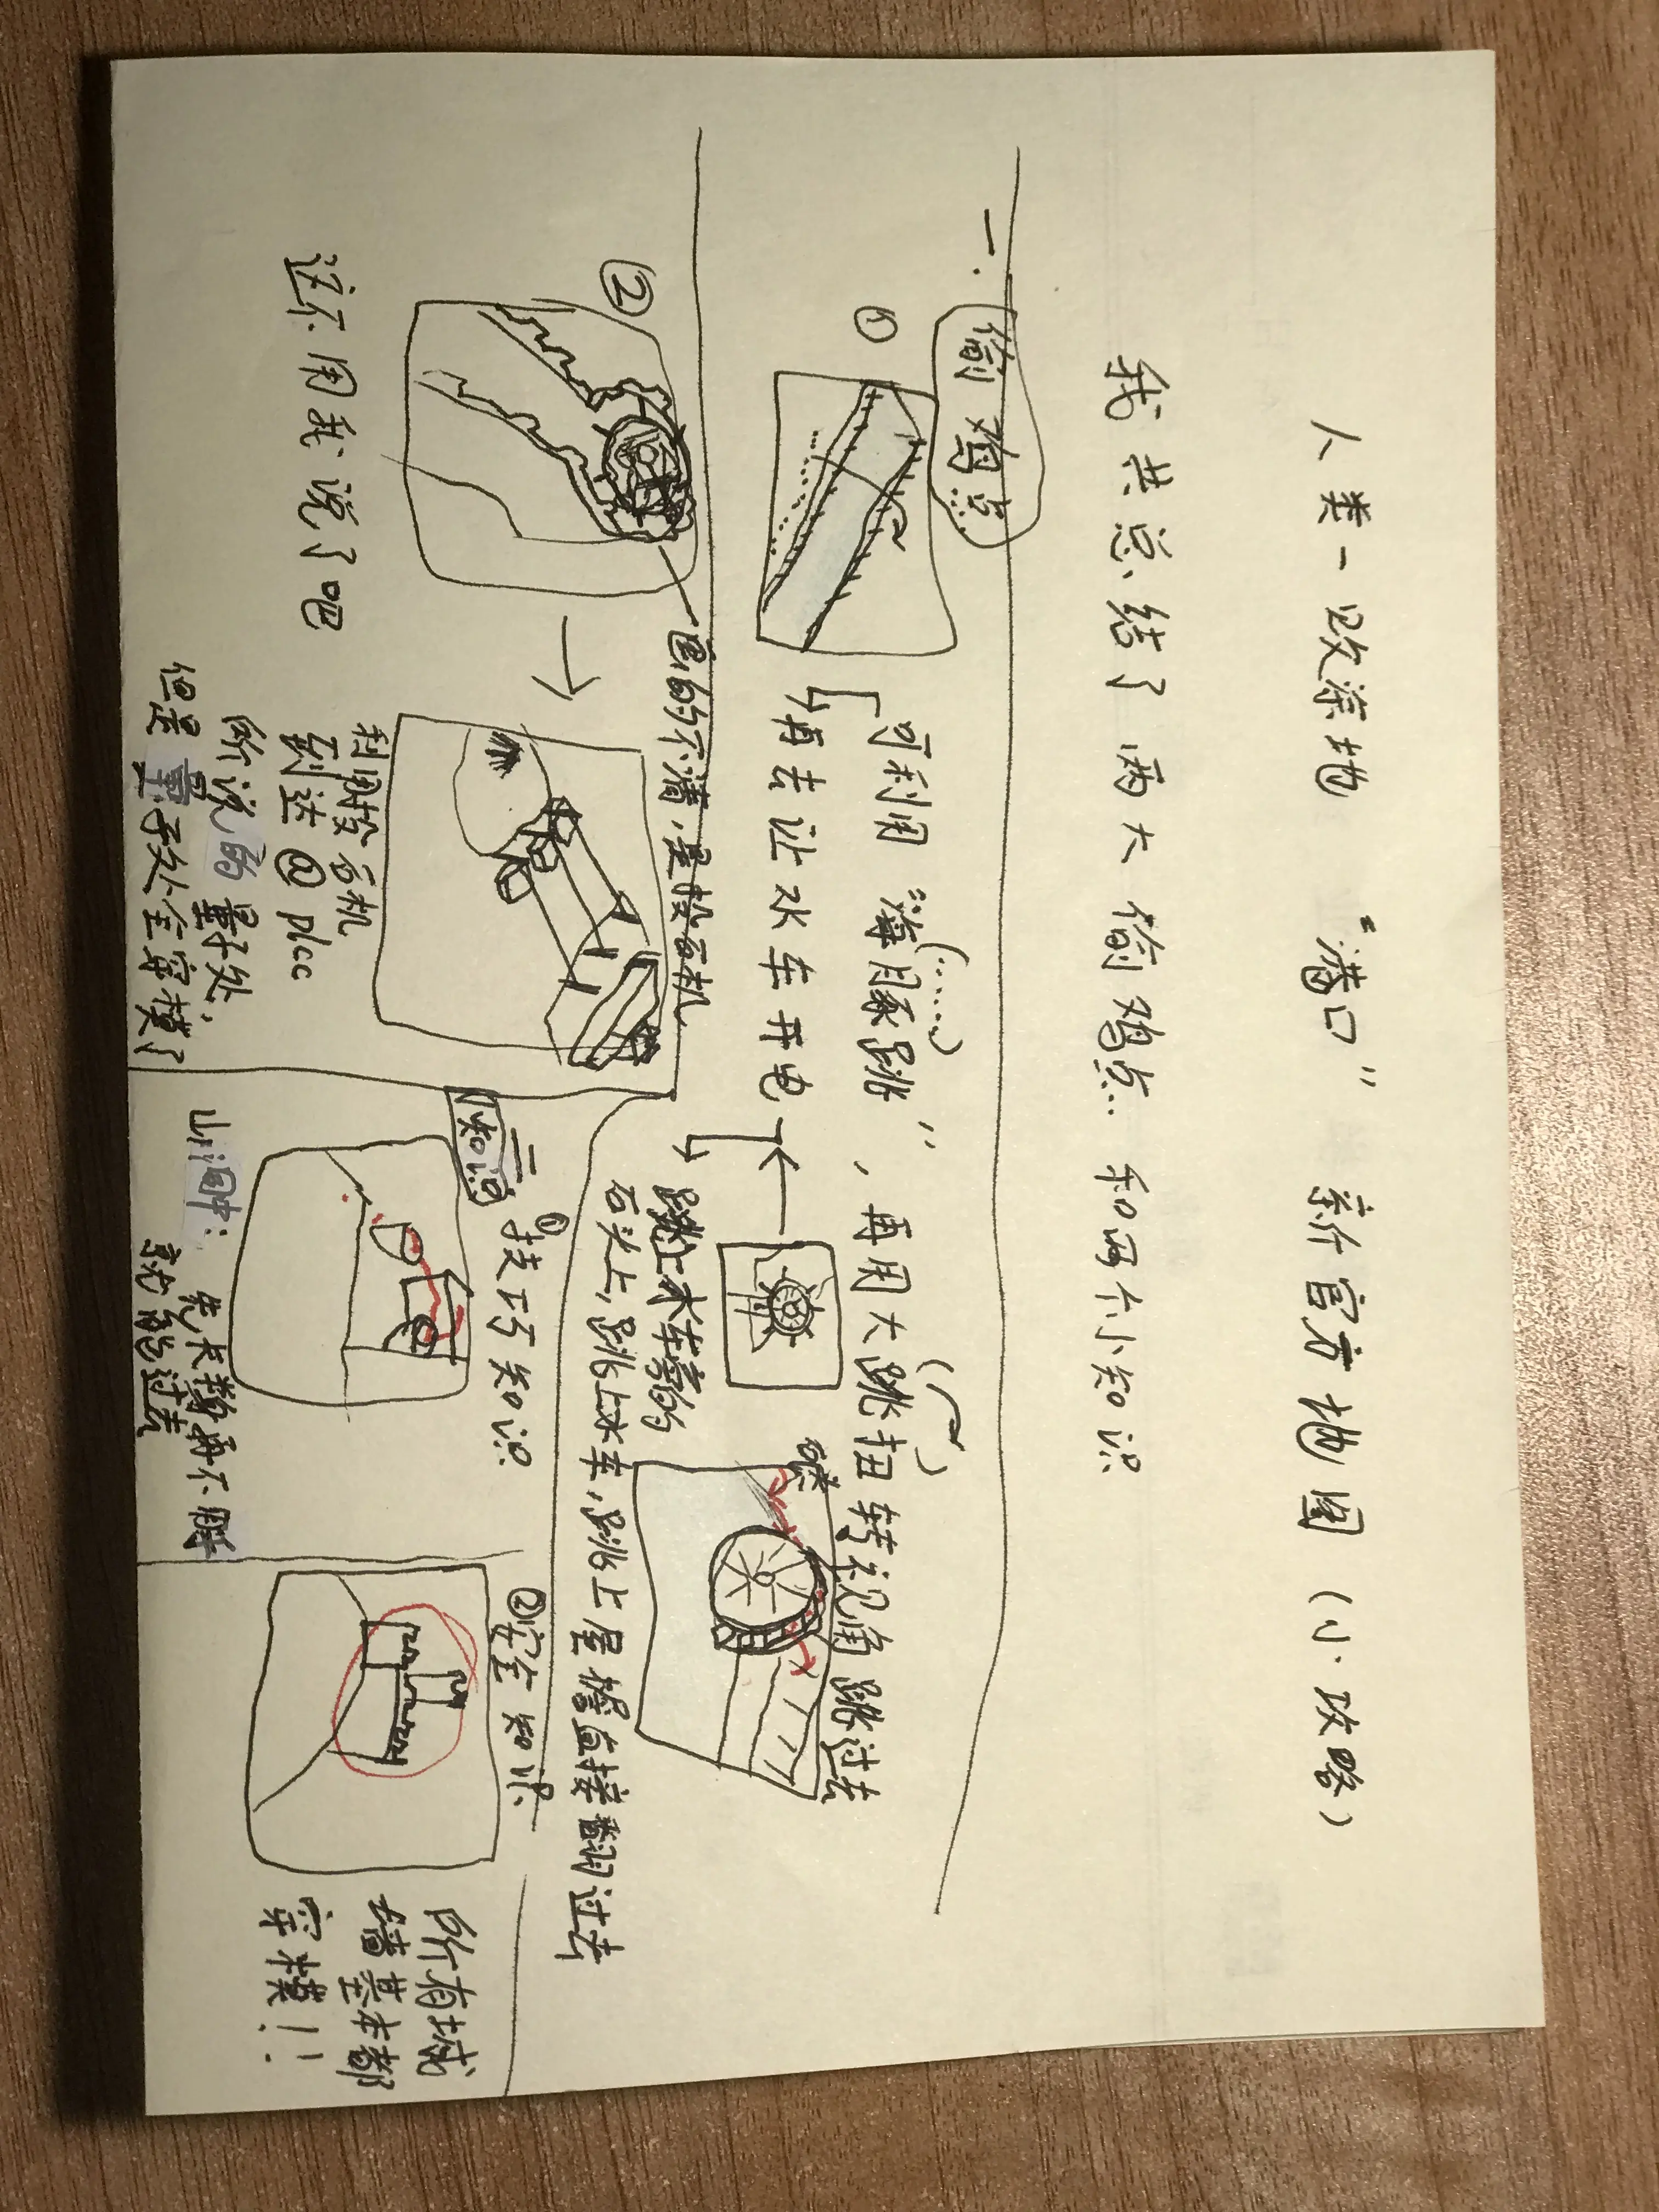 人类一败涂地 “港口” 新官方地图（小攻略）
我共总结了两大偷鸡点和两个小知识
一.
偷鸡点
①
可利用“海豚跳”，再用大跳扭转视角跳过去
(……)
再去让水车开电
跳上水车旁的
石头上，跳上水车，跳上屋檐直接翻过去
②
画的不清，是投石机
这不用我说了吧
利用投石机
到达@plcc
所说的墨子处，
但是墨子处全穿模了
二
知识
①技巧知识
山洞中：
先长鞭再不瞬
就能过去
②安全知识
所有城
墙基本都
穿模！！